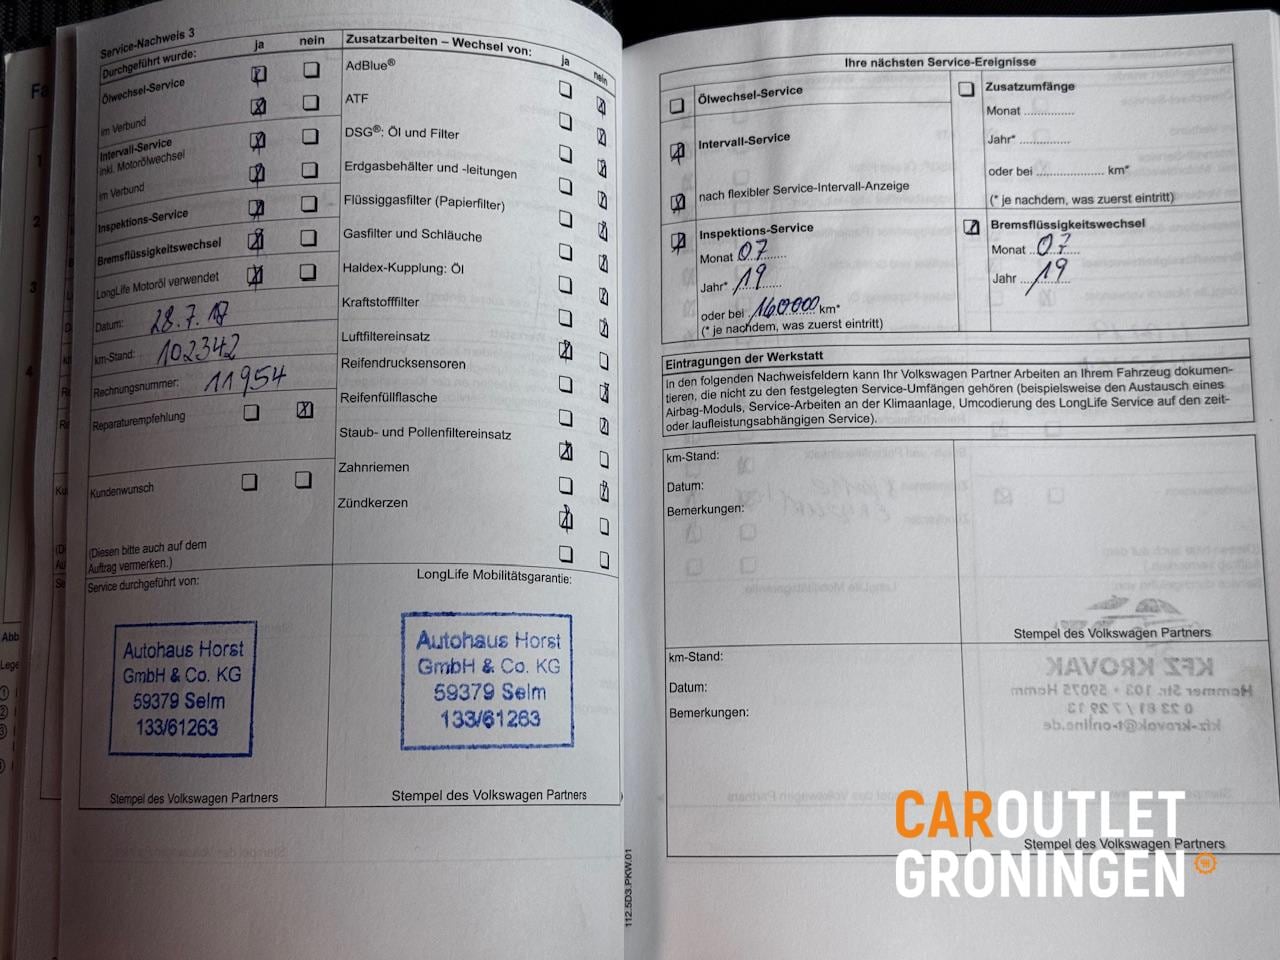 Service-Nachweis 3
Durchgeführt wurde: ja nein
Ölwechsel-Service
im Verbund
Intervall-Service
inkl. Motorölwechsel
im Verbund
Inspektions-Service
Bremsflüssigkeitswechsel
LongLife Motoröl verwendet
Datum: 28.7.17
km-Stand: 102342
Rechnungsnummer: 11954
Reparaturempfehlung
Kundenwunsch
(Diesen bitte auch auf dem
Auftrag vermerken.)
Service durchgeführt von:
Autohaus Horst
GmbH & Co. KG
59379 Selm
133/61263
Stempel des Volkswagen Partners
Zusatzarbeiten – Wechsel von: ja nein
AdBlue®
ATF
DSG®: Öl und Filter
Erdgasbehälter und -leitungen
Flüssiggasfilter (Papierfilter)
Gasfilter und Schläuche
Haldex-Kupplung: Öl
Kraftstofffilter
Luftfiltereinsatz
Reifendrucksensoren
Reifenfüllflasche
Staub- und Pollenfiltereinsatz
Zahnriemen
Zündkerzen
LongLife Mobilitätsgarantie:
Autohaus Horst
GmbH & Co. KG
59379 Selm
133/61263
Stempel des Volkswagen Partners
112.5D3.PKW.01
Ihre nächsten Service-Ereignisse
Ölwechsel-Service
Intervall-Service
nach flexibler Service-Intervall-Anzeige
Inspektions-Service
Monat 07
Jahr* 19
oder bei 160000 km*
(* je nachdem, was zuerst eintritt)
Zusatzumfänge
Monat ..............
Jahr* ..............
oder bei ................... km*
(* je nachdem, was zuerst eintritt)
Bremsflüssigkeitswechsel
Monat 07
Jahr 19
Eintragungen der Werkstatt
In den folgenden Nachweisfeldern kann Ihr Volkswagen Partner Arbeiten an Ihrem Fahrzeug dokumen-
tieren, die nicht zu den festgelegten Service-Umfängen gehören (beispielsweise den Austausch eines
Airbag-Moduls, Service-Arbeiten an der Klimaanlage, Umcodierung des LongLife Service auf den zeit-
oder laufleistungsabhängigen Service).
km-Stand:
Datum:
Bemerkungen:
Stempel des Volkswagen Partners
km-Stand:
Datum:
Bemerkungen:
KFZ KROVAK
Hammer Str. 103 · 59075 Hamm
0 23 81 / 7 29 13
kfz-krovak@t-online.de
Stempel des Volkswagen Partners
CAROUTLET
GRONINGEN